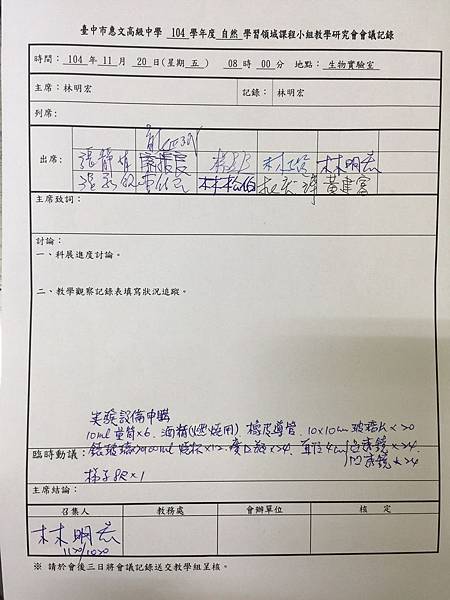 臺中市惠文高級中學 104 學年度 自然 學習領域課程小組教學研究會會議記錄
時間：104 年 11 月 20 日(星期 五 ) 08 時 00 分 地點：生物實驗室
主席：林明宏 記錄：林明宏
列席：
出席：
林明宏
林松伯 黃建富
主席致詞：
討論：
一、科展進度討論。
二、教學觀察記錄表填寫狀況追蹤。
實驗設備申購
10ml 量筒×6、酒精(燃燒用)、橡皮導管、10×10cm 玻璃片×20
臨時動議： 燒杯×12、 ×24、直徑4cm 凸透鏡×24
凹透鏡×24
梯子8尺×1
主席結論：
召集人 教務處 會辦單位 核 定
林明宏
1120/1020
※ 請於會後三日將會議記錄送交教學組呈核。